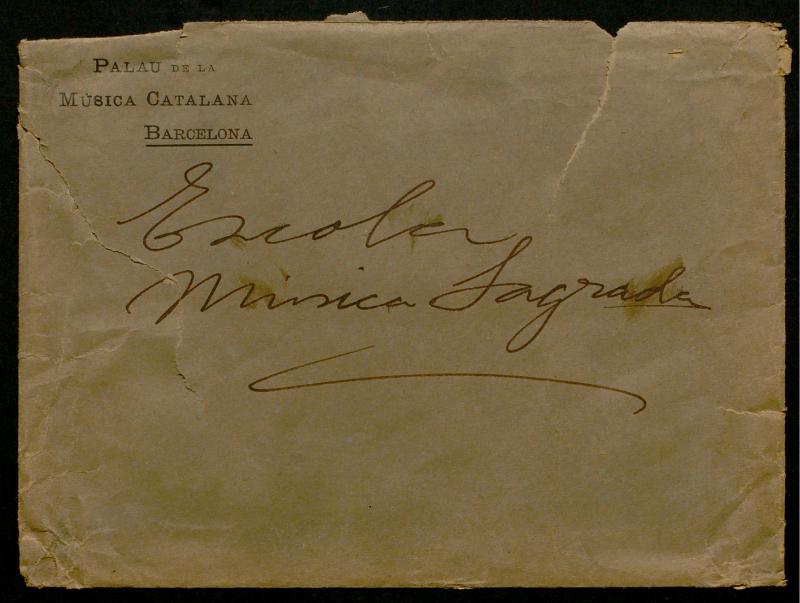 PALAU DE LA
MÚSICA CATALANA
BARCELONA
Escola
Musica Sagrada